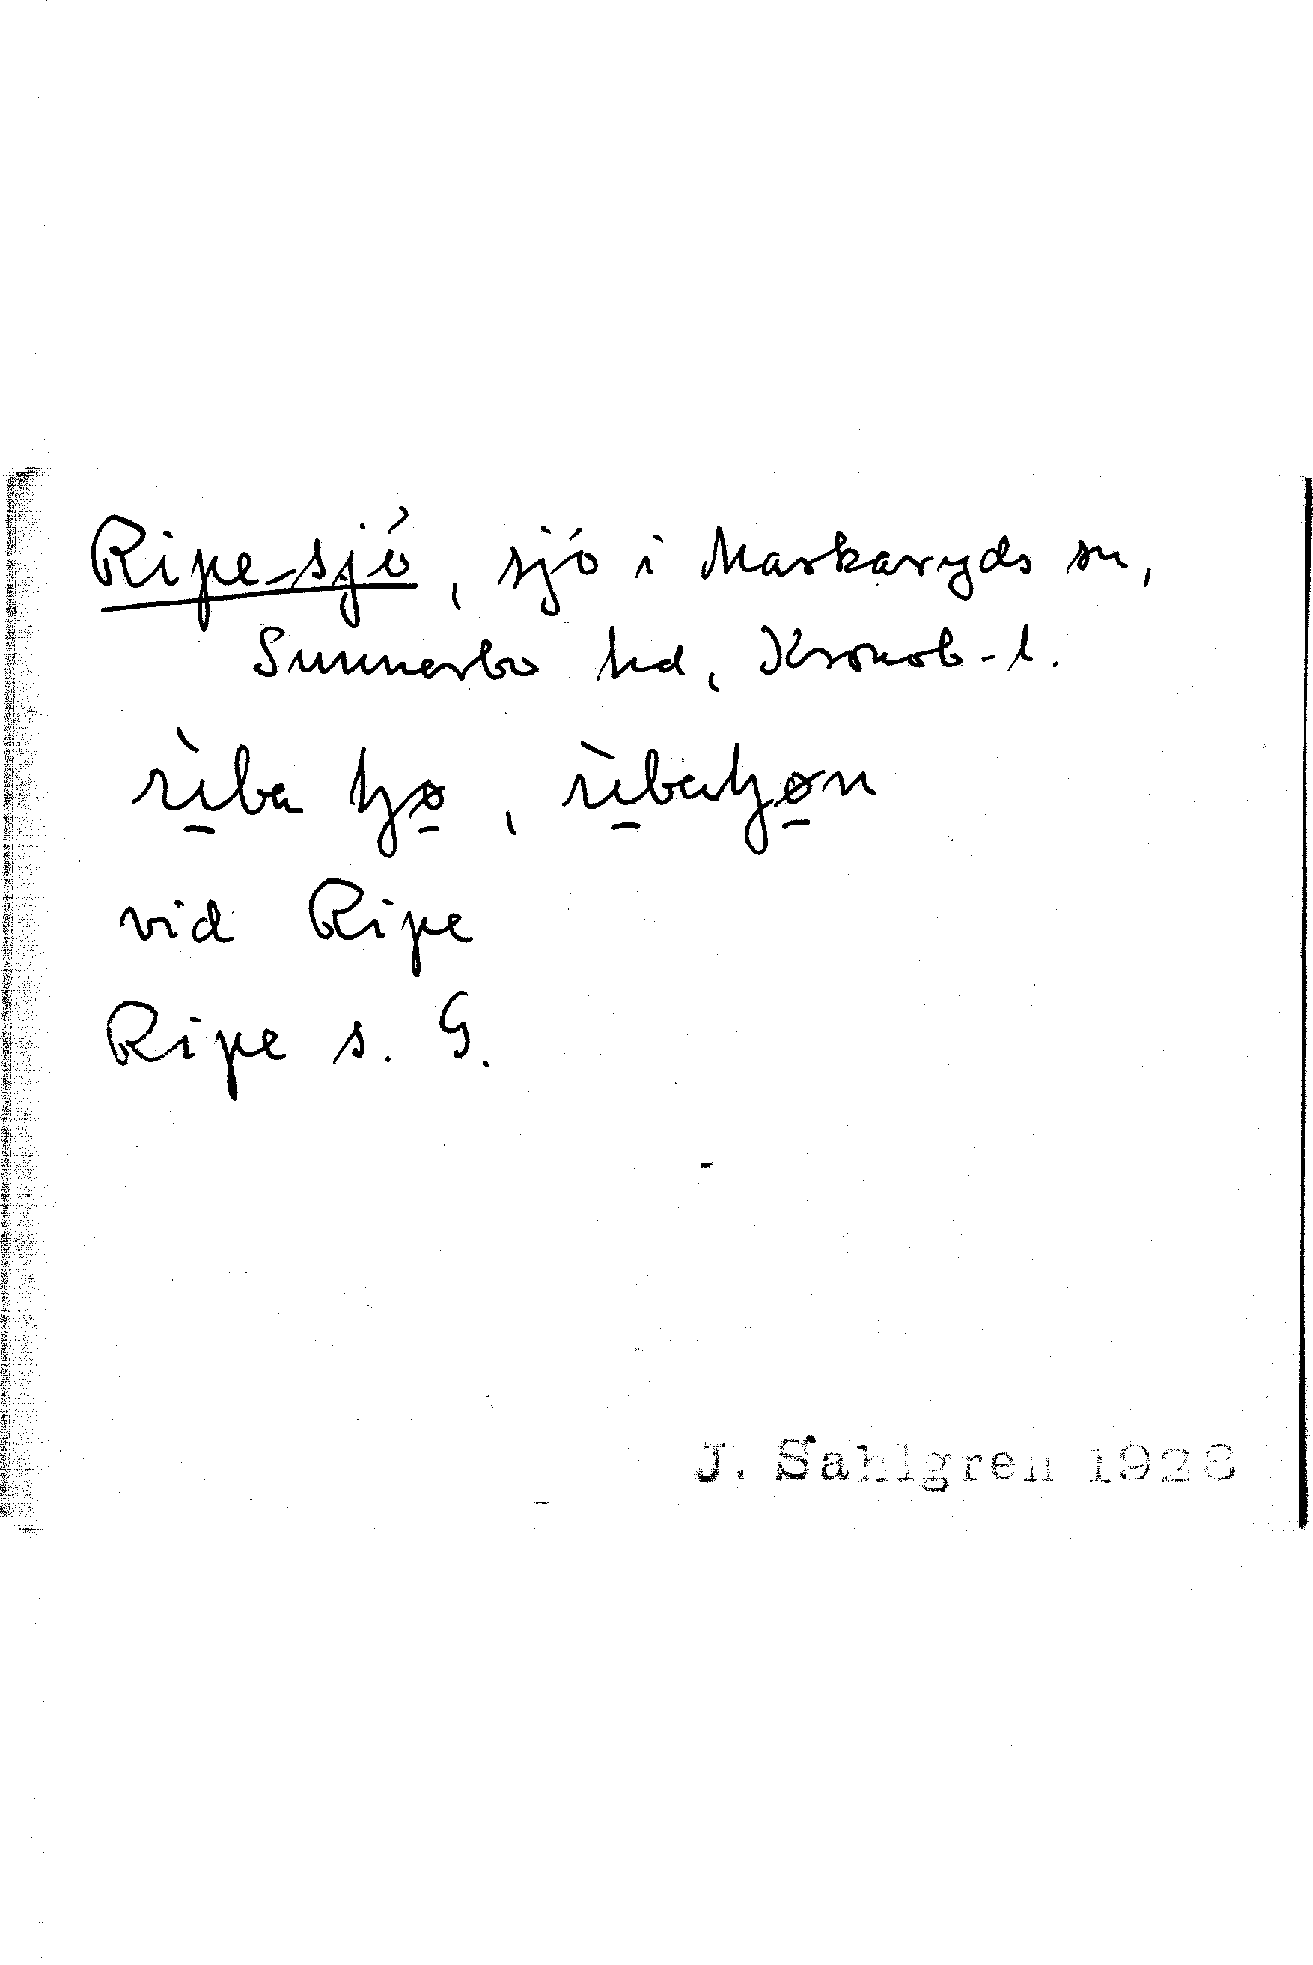 Ripe-sjö, sjö i Markaryds sn,
Sunnerbo hd, Kronob-l.
rìba ꜧø, rìbaꜧøn
vid Ripe
Ripe s. G.
J. Sahlgren 1926